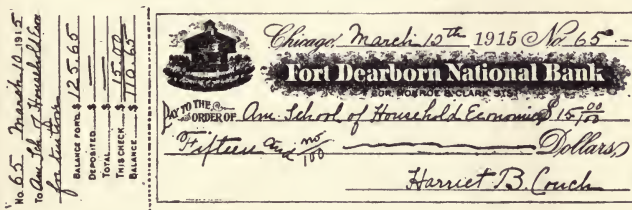 No. 65 March 10 1915
To Am. Sch. of Household Econ
for tuition
BALANCE FOR'D $ 125.65
DEPOSITED $
TOTAL $
THIS CHECK $ 15.00
BALANCE $ 110.65
Chicago, March 10th 1915 No 65
Fort Dearborn National Bank
COR. MONROE & CLARK STS.
PAY TO THE
ORDER OF Am. School of Household Economics $15 00/100
Fifteen and no/100 Dollars
Harriet B. Couch